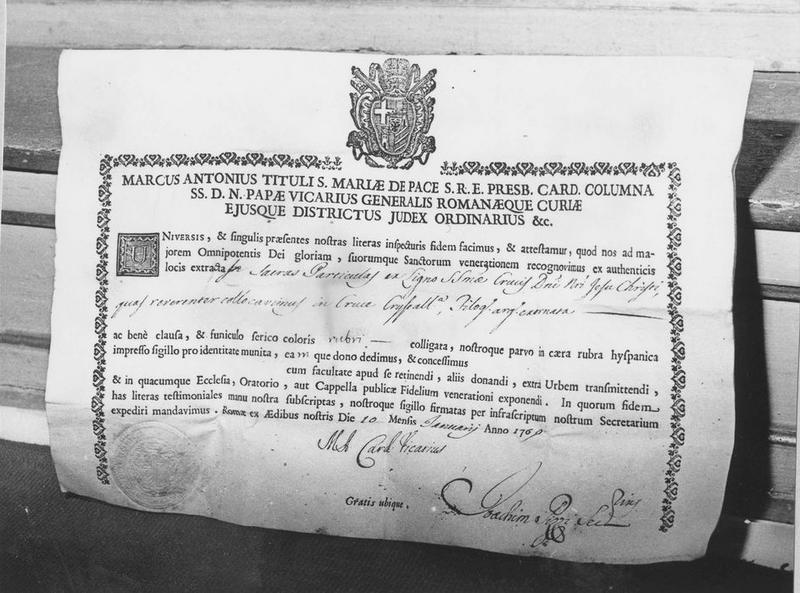 MARCUS ANTONIUS TITULI S. MARIÆ DE PACE S. R. E. PRESB. CARD. COLUMNA
SS. D. N. PAPÆ VICARIUS GENERALIS ROMANÆQUE CURIÆ
EJUSQUE DISTRICTUS JUDEX ORDINARIUS &c.
UNIVERSIS, & singulis præsentes nostras literas inspecturis fidem facimus, & attestamur, quod nos ad ma-
jorem Omnipotentis Dei gloriam, suorumque Sanctorum venerationem recognovimus ex authenticis
locis extractas Sacras Particulas ex Ligno SSmæ Crucis Dni Nri Jesu Christi,
quas reverenter collocavimus in Cruce Crystall.ª, Filog.ª arg.ª exornata
ac benè clausa, & funiculo serico coloris rubri colligata, nostroque parvo in cæra rubra hyspanica
impresso sigillo pro identitate munita, eam que dono dedimus, & concessimus
cum facultate apud se retinendi, aliis donandi, extra Urbem transmittendi,
& in quacumque Ecclesia, Oratorio, aut Cappella publicæ Fidelium venerationi exponendi. In quorum fidem
has literas testimoniales manu nostra subscriptas, nostroque sigillo firmatas per infrascriptum nostrum Secretarium
expediri mandavimus. Romæ ex Ædibus nostris Die 10 Mensis Januarij Anno 176
M A Card Vicarius
Gratis ubique.
Joachim